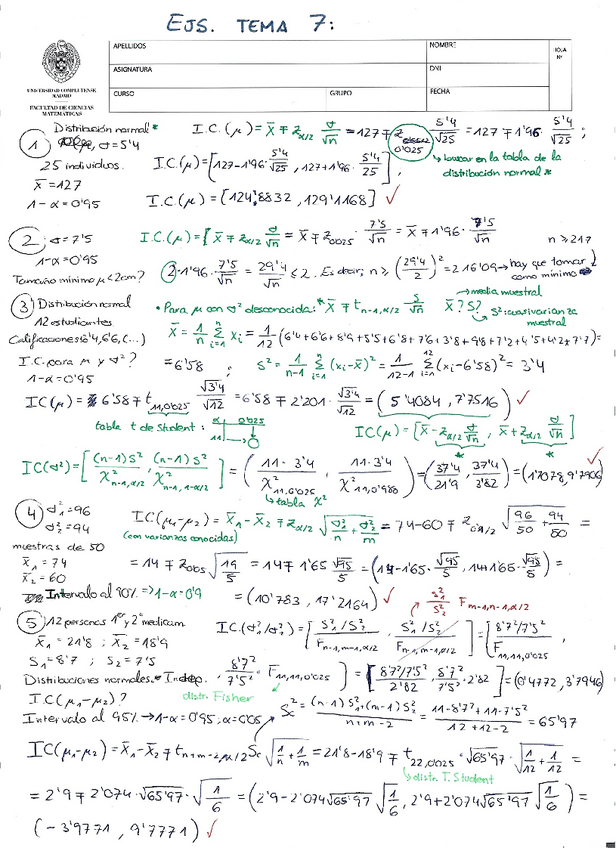 EJS. TEMA 7:
UNIVERSIDAD COMPLUTENSE
MADRID
FACULTAD DE CIENCIAS
MATEMÁTICAS
APELLIDOS
NOMBRE
HOJA
Nº
ASIGNATURA
DNI
CURSO
GRUPO
FECHA
① Distribución normal* σ=5'4
25 individuos.
x̄=127
1-α=0'95
I.C.(μ) = x̄ ∓ z_{α/2} σ/√n = 127 ∓ z_{0'025} 5'4/√25 = 127 ∓ 1'96 · 5'4/√25 ;
↳ buscar en la tabla de la
distribución normal*
I.C.(μ) = [127-1'96· 5'4/√25 , 127+1'96· 5'4/25] ,
I.C.(μ) = [124'8832, 129'1168] ✓
② σ=7'5
1-α=0'95
Tamaño mínimo μ<2cm?
I.C.(μ) = [ x̄ ∓ z_{α/2} σ/√n = x̄ ∓ z_{0'025} · 7'5/√n = x̄ ∓ 1'96 · 7'5/√n
n ≥ 217
②·1'96 · 7'5/√n = 29'4/√n ≤ 2. Es decir, n ≥ (29'4/2)² = 216'09 → hay que tomar
como mínimo
③ Distribución normal
12 estudiantes
Calificaciones: 6'4, 6'6, (...)
I.C. para μ y σ²?
1-α=0'95
• Para μ con σ² desconocida: * x̄ ∓ t_{n-1, α/2} s/√n
media muestral
x̄? S?
↳ s²: cuasivarianza
muestral
x̄ = 1/n Σ_{i=1}^{n} x_i = 1/12 (6'4+6'6+8'9+5'5+6'8+7'6+3'8+9'8+7'2+4'5+4'2+7'7) =
= 6'58 ; s² = 1/(n-1) Σ_{i=1}^{n} (x_i-x̄)² = 1/(12-1) Σ_{i=1}^{12} (x_i-6'58)² = 3'4
IC(μ) = 6'58 ∓ t_{11, 0'025} √3'4/√12 = 6'58 ∓ 2'201 · √3'4/√12 = (5'4084, 7'7516) ✓
tabla t de Student: α 0'025
11
IC(μ) = [x̄ - z_{α/2} σ/√n , x̄ + z_{α/2} σ/√n]
IC(σ²) = [(n-1)S²/χ²_{n-1, α/2} , (n-1)S²/χ²_{n-1, 1-α/2}] = (11·3'4/χ²_{11, 0'025} , 11·3'4/χ²_{11, 0'988}) = (37'4/21'9 , 37'4/3'82) = (1'7078, 9'7906) ✓
↳ tabla χ²
④ σ₁²=96
σ₂²=94
muestras de 50
x̄₁=74
x̄₂=60
Intervalo al 90% ⇒ 1-α=0'9
I.C.(μ₁-μ₂) = x̄₁-x̄₂ ∓ z_{α/2} √(σ₁²/n + σ₂²/m) = 74-60 ∓ z_{0'1/2} √(96/50 + 94/50) =
(con varianzas conocidas)
= 14 ∓ z_{0'05} √(19/5) = 14 ∓ 1'65 √95/5 = (14-1'65· √95/5 , 14+1'65· √95/5) =
= (10'783, 17'2164) ✓
s₁²/s₂² F_{m-1, n-1, α/2}
⑤ 12 personas 1º y 2º medicam.
x̄₁=21'8 ; x̄₂=18'9
S₁=8'7 ; S₂=7'5
Distribuciones normales.* Indep.
I.C.(μ₁-μ₂)?
Intervalo al 95% → 1-α=0'95; α=0'05
I.C.(σ₁²/σ₂²) = [ S₁²/S₂² / F_{n-1, m-1, α/2} , S₁²/S₂² / F_{n-1, m-1, α/2} ] = [ 8'7²/7'5² / F_{11, 11, 0'025} ,
8'7²/7'5² · F_{11, 11, 0'025} ] = [ 8'7²/7'5² / 2'82 , 8'7²/7'5² · 2'82 ] = (0'4772, 3'7946)
distr. Fisher
Sc² = ((n-1)S₁²+(m-1)S₂²)/(n+m-2) = (11·8'7²+11·7'5²)/(12+12-2) = 65'97
IC(μ₁-μ₂) = x̄₁-x̄₂ ∓ t_{n+m-2, α/2} Sc √(1/n + 1/m) = 21'8-18'9 ∓ t_{22, 0'025} · √65'97 · √(1/12 + 1/12) =
↳ distr. T. Student
= 2'9 ∓ 2'074 · √65'97 · √(1/6) = (2'9-2'074√65'97 √(1/6) , 2'9+2'074√65'97 √(1/6)) =
(-3'9771, 9'7771) ✓